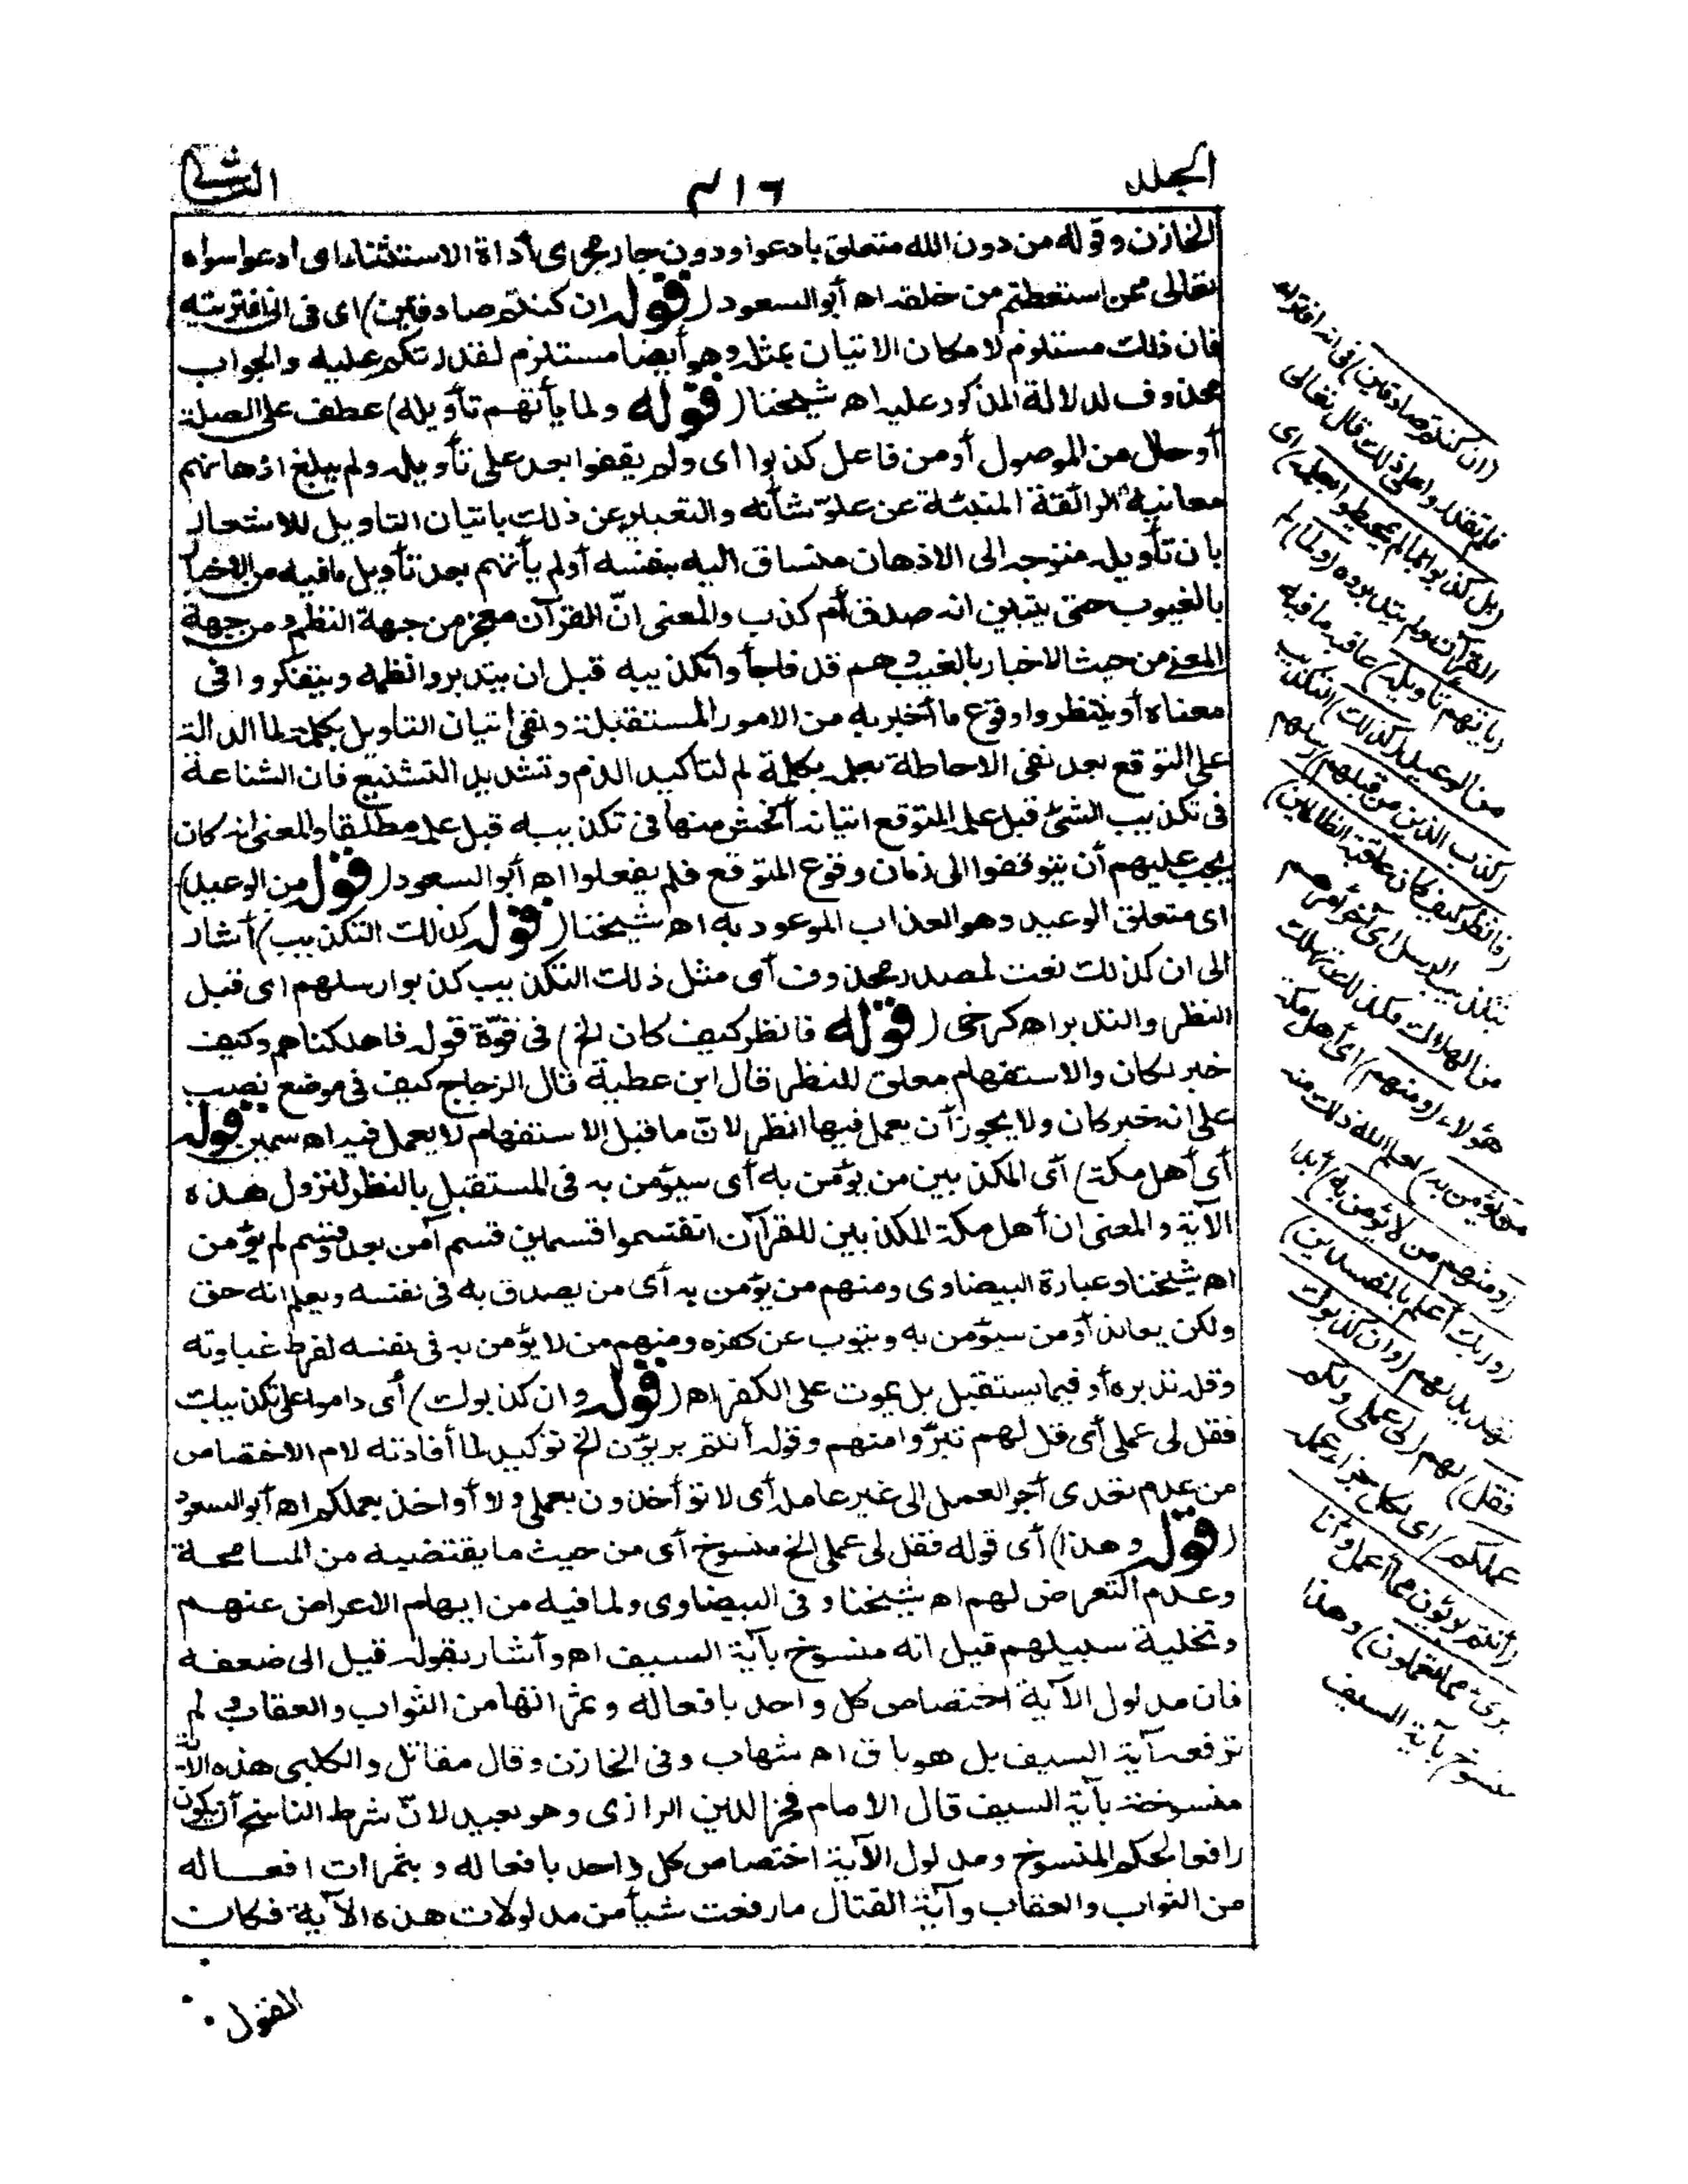 الجلد
٤١٦
الثانى
الخازن وقوله من دون الله متعلق بادعوا ودون جار مجرى أداة الاستثناء اى ادعوا سواه
تعالى ممن استطعتم من خلقه اه أبو السعود (قوله ان كنتم صادقين) اى فى انى افتريته
فان ذلك مستلزم لامكان الاتيان بمثله وهو أيضا مستلزم لقدرتكم عليه والجواب
محذوف لدلالة المذكور عليه اه شيخنا (قوله ولما يأتهم تأويله) عطف على الصلة
أو حال من الموصول أو من فاعل كذبوا اى ولم يقفوا بعد على تأويله ولم يبلغ اذهانهم
معانيه الرائقة المنبئة عن علوّ شأنه والتعبير عن ذلك باتيان التاويل للاشعار
بان تأويله متوجه الى الاذهان منساق اليه بنفسه أو لم يأتهم بعد تأويل ما فيه من الاخبار
بالغيوب حتى يتبين انه صدق أم كذب والمعنى انّ القرآن معجز من جهة النظم ومن جهة
المعنى من حيث الاخبار بالغيب وهم قد فاجأوا تكذيبه قبل ان يتدبروا نظمه ويتفكروا فى
معناه أو ينتظروا وقوع ما أخبر به من الامور المستقبلة ونفى اتيان التاويل بكلمة لما الدالة
على التوقع بعد نفى الاحاطة بعلمه بكلمة لم لتأكيد الذم وتشديد التشنيع فان الشناعة
فى تكذيب الشئ قبل علمه المتوقع اتيانه أفحش منها فى تكذيبه قبل علمه مطلقا والمعنى انه كان
يجب عليهم أن يتوقفوا الى زمان وقوع المتوقع فلم يفعلوا اه أبو السعود (قوله من الوعيد)
اى متعلق الوعيد وهو العذاب الموعود به اه شيخنا (قوله كذلك التكذيب) أشار
الى ان كذلك نعت لمصدر محذوف أى مثل ذلك التكذيب كذبوا رسلهم اى قبل
النظر والتدبر اه كرخى (قوله فانظر كيف كان الخ) فى قوّة قوله فاهلكناهم وكيف
خبر لكان والاستفهام معلق للنظر قال ابن عطية قال الزجاج كيف فى موضع نصب
على انه خبر كان ولا يجوز أن يعمل فيها انظر لانّ ما قبل الاستفهام لا يعمل فيه اه سمين (قوله
أى أهل مكة) أى المكذبين من يؤمن به أى سيؤمن به فى المستقبل بالنظر لنزول هذه
الآية والمعنى ان أهل مكة المكذبين للقرآن انقسموا قسمين قسم آمن بعد وقسم لم يؤمن
اه شيخنا وعبارة البيضاوى ومنهم من يؤمن به أى من يصدق به فى نفسه ويعلم انه حق
ولكن يعاند أو من سيؤمن به ويتوب عن كفره ومنهم من لا يؤمن به فى نفسه لفرط غباوته
وقلة تدبره أو فيما يستقبل بل يموت على الكفر اه (قوله وان كذبوك) أى داموا على تكذيبك
فقل لى عملى أى قل لهم تبرّوا منهم وقوله أنتم بريؤن الخ توكيد لما أفادته لام الاختصاص
من عدم تعدى أجر العمل الى غير عامله أى لا تؤاخذون بعملى ولا أواخذ بعملكم اه أبو السعود
(قوله وهذا) أى قوله فقل لى عملى الخ منسوخ أى من حيث ما يقتضيه من المسامحة
وعدم التعرض لهم اه شيخنا وفى البيضاوى ولما فيه من ايهام الاعراض عنهم
وتخلية سبيلهم قيل انه منسوخ بآية السيف اه وأشار بقوله قيل الى ضعفه
فان مدلول الآية اختصاص كل واحد بافعاله وثمراتها من الثواب والعقاب لم
ترفعه آية السيف بل هو باق اه شهاب وفى الخازن وقال مقاتل والكلبى هذه الآية
منسوخة بآية السيف قال الامام فخر الدين الرازى وهو بعيد لانّ شرط الناسخ أن يكون
رافعا لحكم المنسوخ ومدلول الآية اختصاص كل واحد بافعاله وبثمرات افعاله
من الثواب والعقاب وآية القتال ما رفعت شيأ من مدلولات هذه الآية فكان
القول
(ان كنتم صادقين) فى انه افتراه
فلم تقدروا على ذلك قال تعالى
(بل كذبوا بما لم يحيطوا بعلمه) اى
القرآن ولم يتدبروه (ولما) لم
(يأتهم تأويله) عاقبة ما فيه
من الوعيد (كذلك) التكذيب
(كذب الذين من قبلهم) رسلهم
(فانظر كيف كان عاقبة الظالمين)
بتكذيب الرسل اى آخر أمرهم
من الهلاك فكذلك نهلك
هؤلاء (ومنهم) اى أهل مكة
(من يؤمن به) لعلم الله ذلك منه
(ومنهم من لا يؤمن به) أبدا
(وربك أعلم بالمفسدين)
تهديد لهم (وان كذبوك
فقل) لهم (لى عملى ولكم
عملكم) اى لكل جزاء عمله
(أنتم بريؤن مما أعمل وأنا
برئ مما تعملون) وهذا
منسوخ بآية السيف